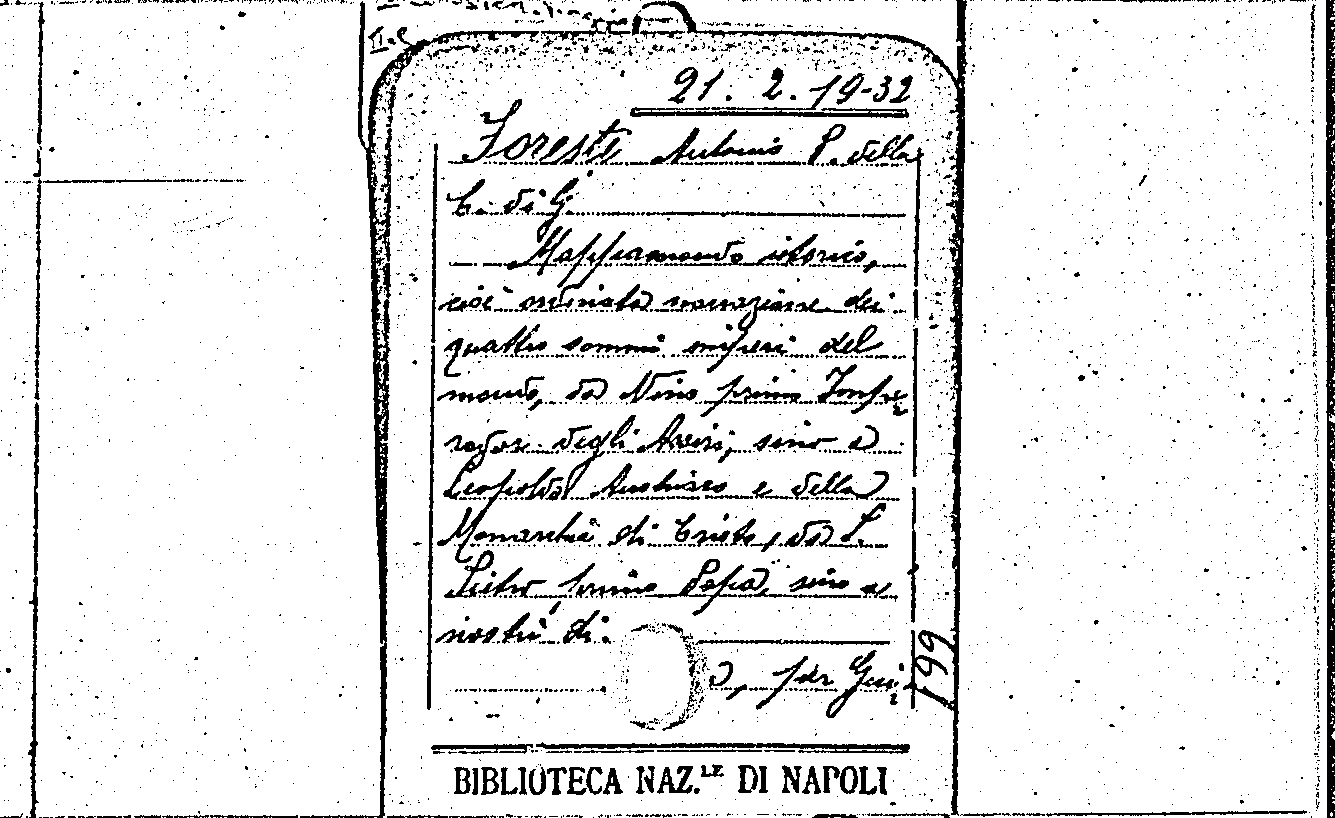 21. 2. 19-32
Foresti Antonio P. della
C. di G.
Mappamondo istorico,
cioè ordinata narrazione dei
quattro sommi imperi del
mondo, da Nino primo Impe=
ratore degli Assiri, sino a
Leopoldo Austriaco e della
Monarchia di Cristo, da S.
Pietro primo Papa, sino a
nostri dì.
a, per Gui=
199
BIBLIOTECA NAZ.LE DI NAPOLI